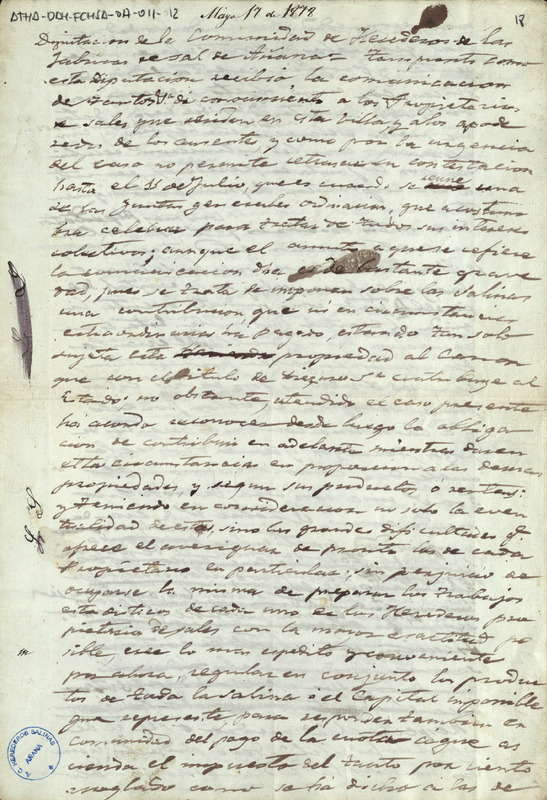 ATHA-DAH-FCHSA-DA-011-12
Mayo 17 de 1878
18
Diputacion de la Comunidad de Herederos de las
fabricas de sal de Añana = Tan pronto como
esta Diputacion recibió la comunicacion
de conocimiento a los Propietarios
de sales que residen en esta Villa y a los apode
rados de los ausentes y como por la urgencia
del caso no permite retrasar su contestacion
hasta el de Julio, que es cuando se reune una
de sus Juntas generales ordinarias, que acostum
bra celebrar para tratar de todos sus intereses
colectivos; aunque el asunto a que se refiere
la comunicacion bastante grave
dad, pues se trata de imponer sobre las Salinas
una contribucion, que ni en circunstancias
extraordinarias ha pagado, estando tan solo
sujeta esta propiedad al Canon
que con el titulo de contribuye al
Estado: no obstante, atendido el caso presente
ha acordado reconocer desde luego la obliga
cion de contribuir en adelante mientras duren
las circunstancias en proporcion a las demas
propiedades, y segun sus productos o rentas:
y teniendo en consideracion no solo la even
tualidad de estas, sino las grandes dificultades qe
ofrece el averiguar de pronto las de cada
Propietario en particular, sin perjuicio de
ocuparse la misma de preparar los trabajos
estadisticos de cada uno de los Herederos pro
pietarios de sales con la mayor exactitud po
sible, cree lo mas expedito y conveniente
por ahora, regular en conjunto los produc
tos de toda la salina o el Capital imponible
que represente, para responder tambien en
comunidad del pago de la cuota a que as
cienda el impuesto del tanto por ciento
arreglado como se ha dicho a las de
A.C. HEREDEROS SALINAS
AÑANA